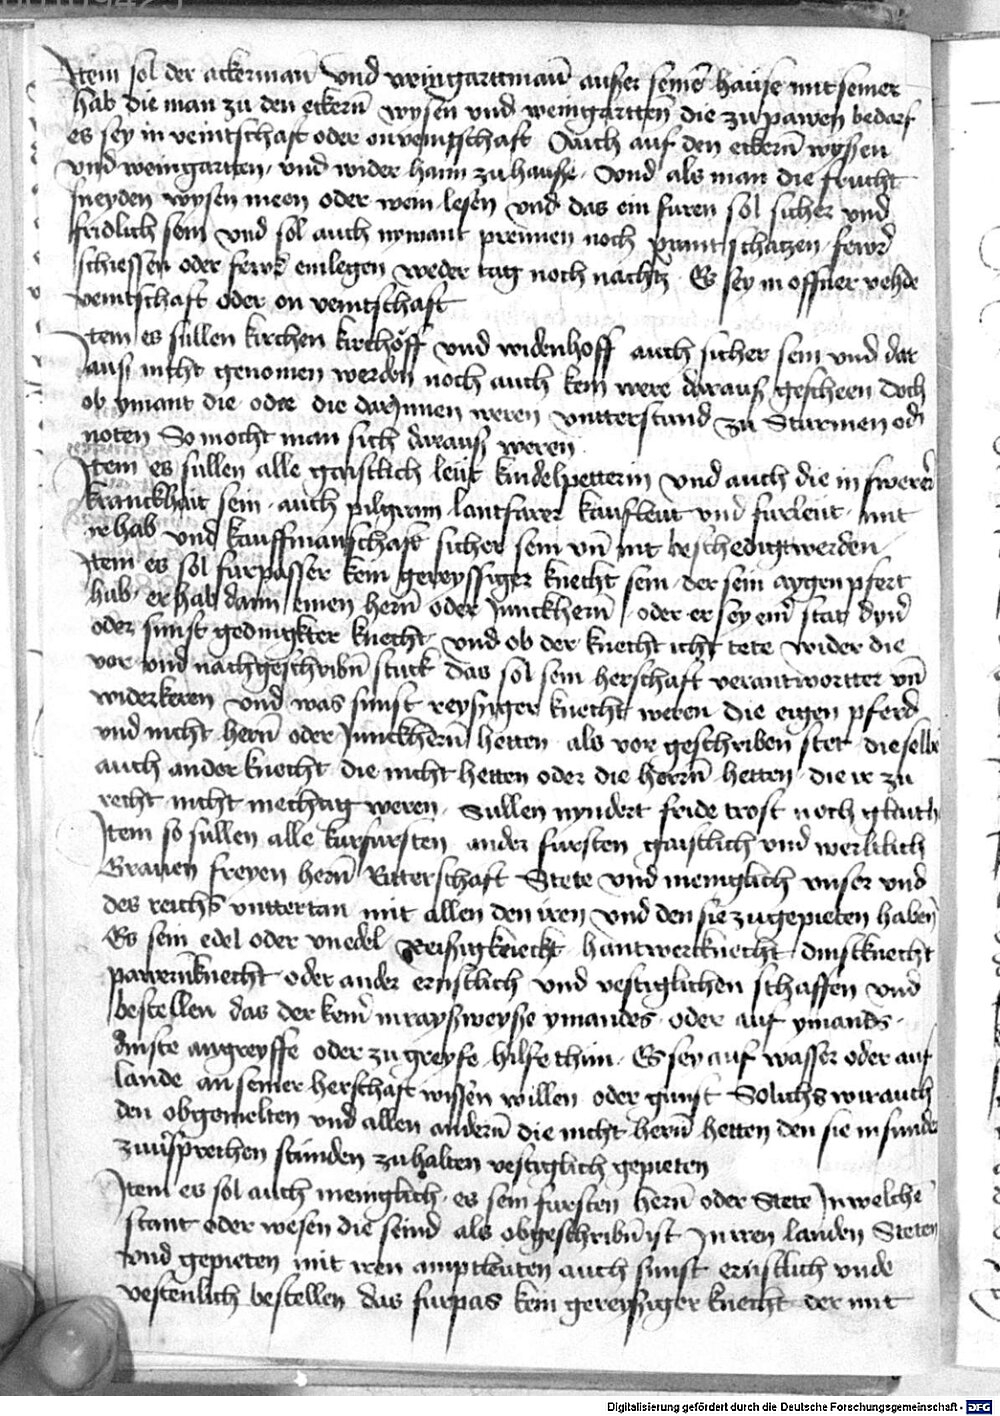 Item sol der ackerman̄ Vnd weingarttman̄ ausser seinē hause mit seiner
hab die man zu den eckern̄ wysen vnd weingartten die zu pawen bedarf
es sey in veintschaft oder on veintschaft Auch auf den eckern̄ wyssen
vnd weingarten vnd wider haim zu hausse Vnd als man die frucht
sneyden wysen meen oder wein lesen Vnd das ein furen sol sicher vnd
fridlich sein Vnd sol auch nymant prennen noch prantschatzen fewr
schiessen oder fewr einlegen weder tag noch nachtz Es sey in offner vehde
veintschaft oder on veintschaft
Item es sullen kirchen kirchöff vnd widenhoff auch sicher sein vnd dar
aus nicht genomen werden noch auch kein were daraus gescheen Doch
ob ymant die oder die darInnen weren vntterstund zu Sturmen od̄
noten So mocht man sich daraus weren
Item es sullen alle gaistlich leut kindelpetterin vnd auch die in swerer
kranckhait sein auch pilgrim lantfarer kaufleut vnd furleut mit
ir hab vnd kauffmanschaft sicher sein vn̄ nit beschedigt werden
Item es sol furpasser kein gereyssiger knecht sein der sein aygen pfert
hab er hab dann einen hern̄ oder Junckhern̄ oder er sey ein̄ stat dyn̄
oder sunst gedingkter knecht vnd ob der knecht icht tete wider die
vor vnd nachgeschribn̄ stuck das sol sein herschaft verantwortter vn̄
widerkeren Vnd was sunst reysiger knecht weren die eigen pferd
vnd nicht hern̄ oder Junckhern̄ hetten als vor geschriben stet dieselbē
auch ander knecht die nicht hetten oder die herrn̄ hetten die ir zu
recht nicht mechtig weren Sullen nyndert fride trost noch glait h
Item so sullen alle kurfursten ander fursten gaistlich vnd werltlich
Grauen freyen hern̄ Ritterschaft Stete vnd meniglich vnser vnd
des reichs vnttertan mit allen den iren Vnd den sie zu gepieten haben
Es sein edel oder vnedel Reisigkneckt hantwercknecht dinstknecht
pawernknecht oder ander ernstlich vnd vestiglichen schaffen vnd
bestellen das der kein̄ in raysweysse ymandes oder auf ymands
dinste angreyffe oder zugreyfe hilfe thun Es sey auf wasser oder auf
lande an seiner herschaft wissen willen oder gunst Solichs wir auch
den obgemelten vnd allen andern̄ die nicht hern̄ hetten den sie in sunder
zuuersprechen stunden zuhalten vestiglich gepieten
Item es sol auch meinglich es sein fursten hern̄ oder Stete In welchē
stant oder wesen die seind als obgeschribn̄ ist In iren landen Steten
vnd gepieten mit iren amptleuten auch sunst ernstlich vnde
vestenlich bestellen das furpas kein gereysiger knecht der nit